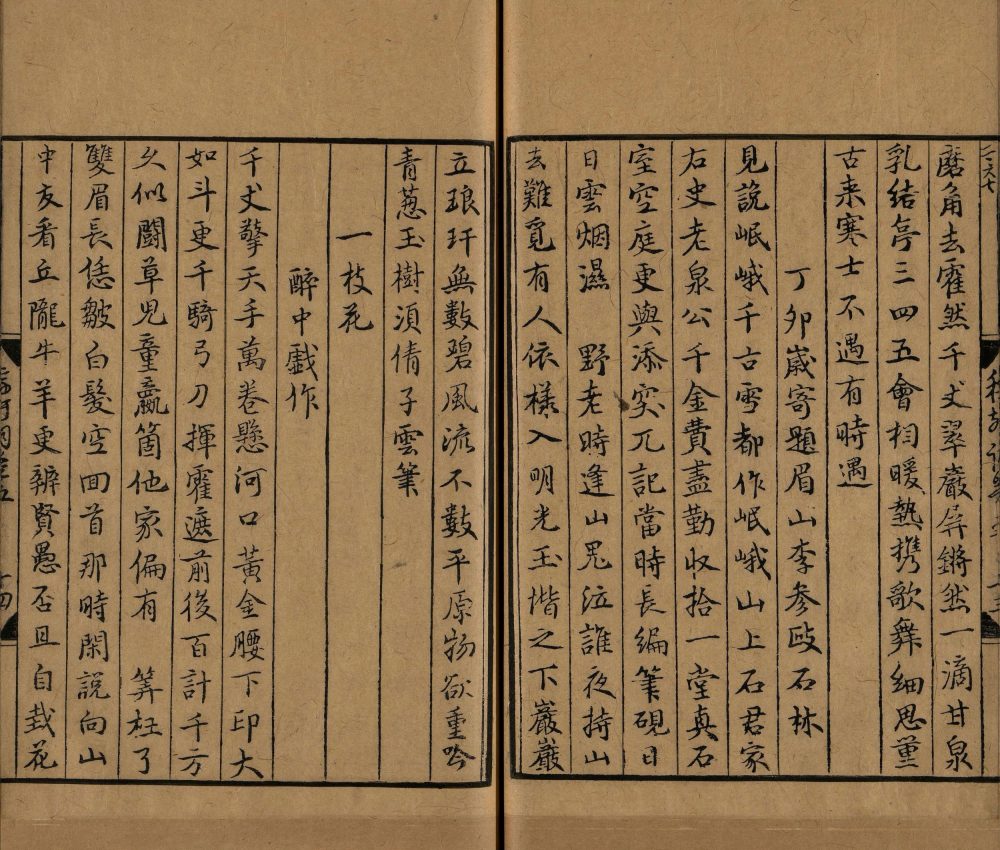 磨角去霍然千丈翠巖屏鏘然一滴甘泉
乳結亭三四五會相暖熱携歌舞細思量
古来寒士不遇有時遇
丁卯歲寄題眉山李参政石林
見說岷峨千古雪都作岷峨山上石君家
右史老泉公千金費盡勤収拾一堂真石
室空庭更與添突兀記當時長編筆硯日
日雲烟濕　野老時逢山鬼泣誰夜持山
去難覓有人依樣入明光玉堦之下巖巖
立琅玕無數碧風流不數平原物欲重吟
青葱玉樹須倩子雲筆
一枝花
醉中戯作
千丈擎天手萬卷懸河口黃金腰下印大
如斗更千騎弓刀揮霍遮前後百計千方
久似鬪草兒童贏箇他家偏有　筭枉了
雙眉長恁皺白髮空囬首那時閑說向山
中友看丘隴牛羊更辨賢愚否且自栽花